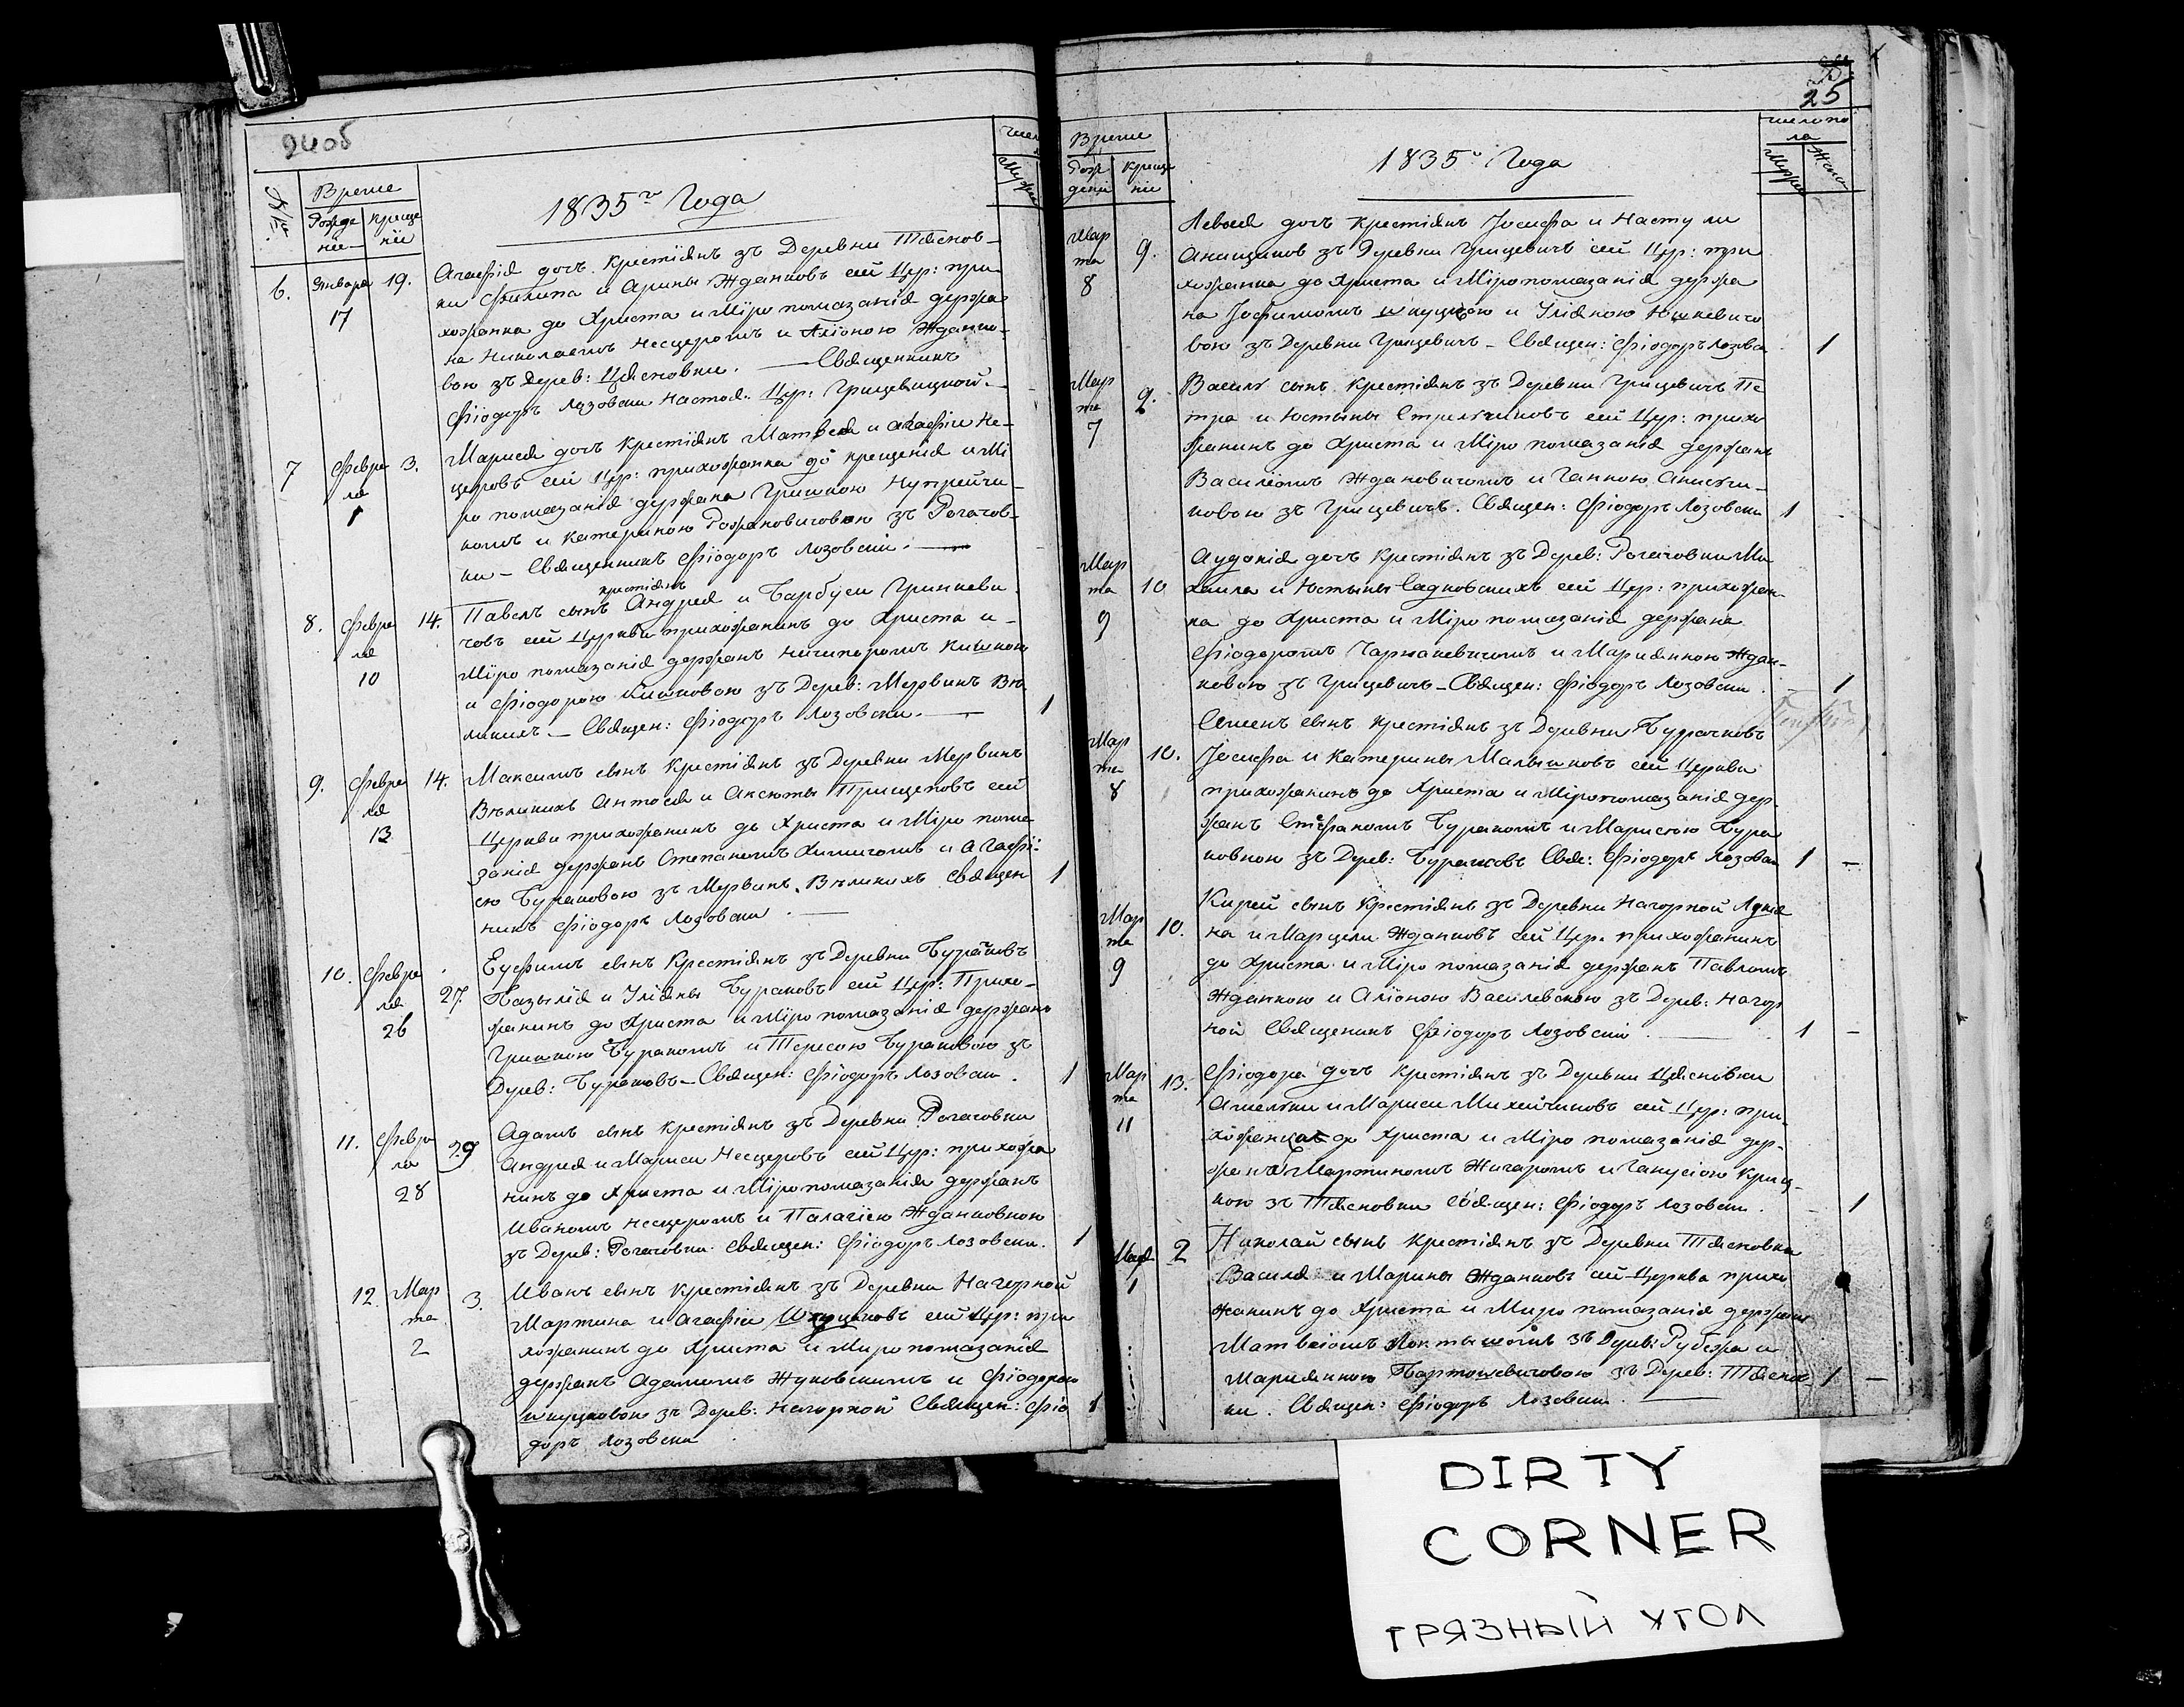 24об
№
Время
Рожде
ніе
креще
ніе
1835го Года
Мужес
6.
Января
17
19.
Агафія дочъ Крестіянъ зъ Деревни Тяснов-
ки Филипа и Арины Жданковъ сей Цер: при
хожанка до Христа и Міро помазанія держа
на Николаемъ Несцеромъ и Аліоною Жданко-
вою зъ Дерев: Цясновки. — Священникъ
Фіодоръ Лозовски Настоя. Цер: Грицевицкой. —
7
Февра
ля
1
3.
Марися дочъ Крестіянъ Матвея и Агафіи Не-
церовъ сей Цер: прихожанка до крещенія и Мі
ро помазанія держана Гришкою Купрейчи-
комъ и Катериною Рожановичовою зъ Рогачов-
ки — Священникъ Фіодоръ Лозовскій. —
8.
Февра
ля
10
14.
крестіянъ
Павелъ сынъ Андрея и Барбуси Гринкеви
човъ сей Церкви прихожанинъ до Христа и -
Міро помазанія держанъ Ничипоромъ Кишкою
и Фіодорою Кишковою зъ Дерев: Мервинъ Ве
ликихъ — Священ: Фіодоръ Лозовски. —
1
9.
Февра
ля
13
14.
Максимъ сынъ Крестіянъ зъ Деревни Мервинъ
Великихъ Антося и Аксюты Прищеповъ сей
Церкви прихожанинъ до Христа и Міро пома
занія держанъ Степаномъ Химичомъ и Агафі-
ею Бураковою зъ Мервинъ Великихъ Священ
никъ Фіодоръ Лозовски. —
1
10.
Февра
ля
26
27.
Еуфимъ сынъ Крестіянъ зъ Деревни Бураковъ
Базыля и Уляны Бураковъ сей Цер: Прихо-
жанинъ до Христа и Міро помазанія держанъ
Гришкою Буракомъ и Тересою Бураковою зъ
Дерев: Бураковъ — Священ: Фіодоръ Лозовски.
1
11.
Февра
ля
28
29
Адамъ сынъ Крестіянъ зъ Деревни Рогачовки
Андрея и Мариси Несцеровъ сей Цер: прихожа
нинъ до Христа и Міро помазанія держанъ
Иваномъ Несцеромъ и Палагіею Жданковною
зъ Дерев: Рогачовки Священ: Фіодоръ Лозовски.
1
12.
Мар
та
2
3.
Иванъ сынъ Крестіянъ зъ Деревни Нагорной
Мартина и Агафіи Шкуцковъ сей Цер: при
хожанинъ до Христа и Миро помазанія
держанъ Адамомъ Жуковскимъ и Фіодорою
Шкуцковою зъ Дерев: Нагорной Священ: Фіо
доръ Лозовски.
1
25
Время
Рож
дени
Креще
ніе
1835го Года
число по
ла
Мужес
Женс
Мар
та
8
9.
дочъ Крестіянъ Іосифа и Насту ли
Анищиковъ зъ Деревни Грицевичъ сей Цер: при
хожанка до Христа и Міро помазанія держа
на Іофимомъ Шкуцкою и Уляною Юшкевичо
вою зъ Деревни Грицевичъ — Священ: Фіодоръ Лозовс
1
Мар
та
7
9.
Василь сынъ Крестіянъ зъ Деревни Грицевичъ Пе
тра и Юстыны Стрельчиковъ сей Цер: прихо
жанинъ до Христа и Міро помазанія держанъ
Василіомъ Ждановичомъ и Ганною Анисчи-
ковою зъ Грицевичъ. Священ: Фіодоръ Лозовски
1 -
Мар
та
9
10
Аудокія дочъ Крестіянъ зъ Дерев: Рогачовки Ми
хаила и Юстыны Садковскихъ сей Цер: прихожан-
ка до Христа и Міро помазанія держана
Фіодоромъ Чарнакевичомъ и Маріянною Ждан-
ковою зъ Грицевичъ — Священ: Фіодоръ Лозовски.
- 1
Мар
та
8
10.
Семенъ сынъ Крестіянъ зъ Деревни Бурачковъ
Іосифа и Катерины Малышковъ сей Церкви
прихожанинъ до Христа и Міропомазанія дер-
жанъ Стефаномъ Буракомъ и Марисею Бура
ковною зъ Дерев: Бураковъ Свя: Фіодоръ Лозовски
1 -
Мар
та
9
10.
Кирей сынъ Крестіянъ зъ Деревни Нагорной Лукя
на и Марцели Жданковъ сей Цер. прихожанинъ
до Христа и Міро помазанія держанъ Павломъ
Жданкою и Аліоною Василевскою зъ Дерев: Нагор
ной Священникъ Фіодоръ Лозовскій. —
1 -
Мар
та
11
13.
Фіодора дочъ Крестіянъ зъ Деревни Цясновки
Амельки и Мариси Михейчиковъ сей Цер: при-
хожанка до Христа и Міро помазанія дер-
жана Мартиномъ Жигаромъ и Ганусіою Криц-
кою зъ Тясновки Священ: Фіодоръ Лозовски.
- 1
Мар
1
2
Николай сынъ Крестіянъ зъ Деревни Тясновки
Василя и Марины Жданковъ сей Церкви прихо
жанинъ до Христа и Миро помазанія держанъ
Матвеіомъ Локтышомъ зъ Дерев: Рубежа и
Маріянною Бартошевичовою зъ Дерев: Тяснов-
ки. Священ: Фіодоръ Лозовски. —
1 -
DIRTY
CORNER
ГРЯЗНЫЙ УГОЛ